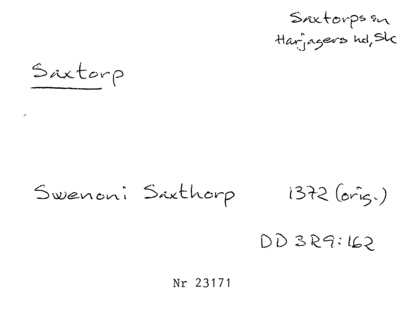 Saxtorps sn
Harjagers hd, Sk
Saxtorp
Swenoni Saxthorp 1372 (orig.)
DD 3R9:162
Nr 23171